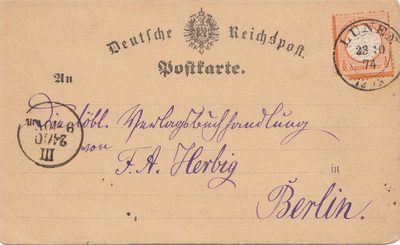 Deutsche Reichspost.
Postkarte.
LÜNEN
23 10
74
An
Die löbl. Verlagsbuchhandlung
von
F. A. Herbig
in
Berlin.
III
24/10